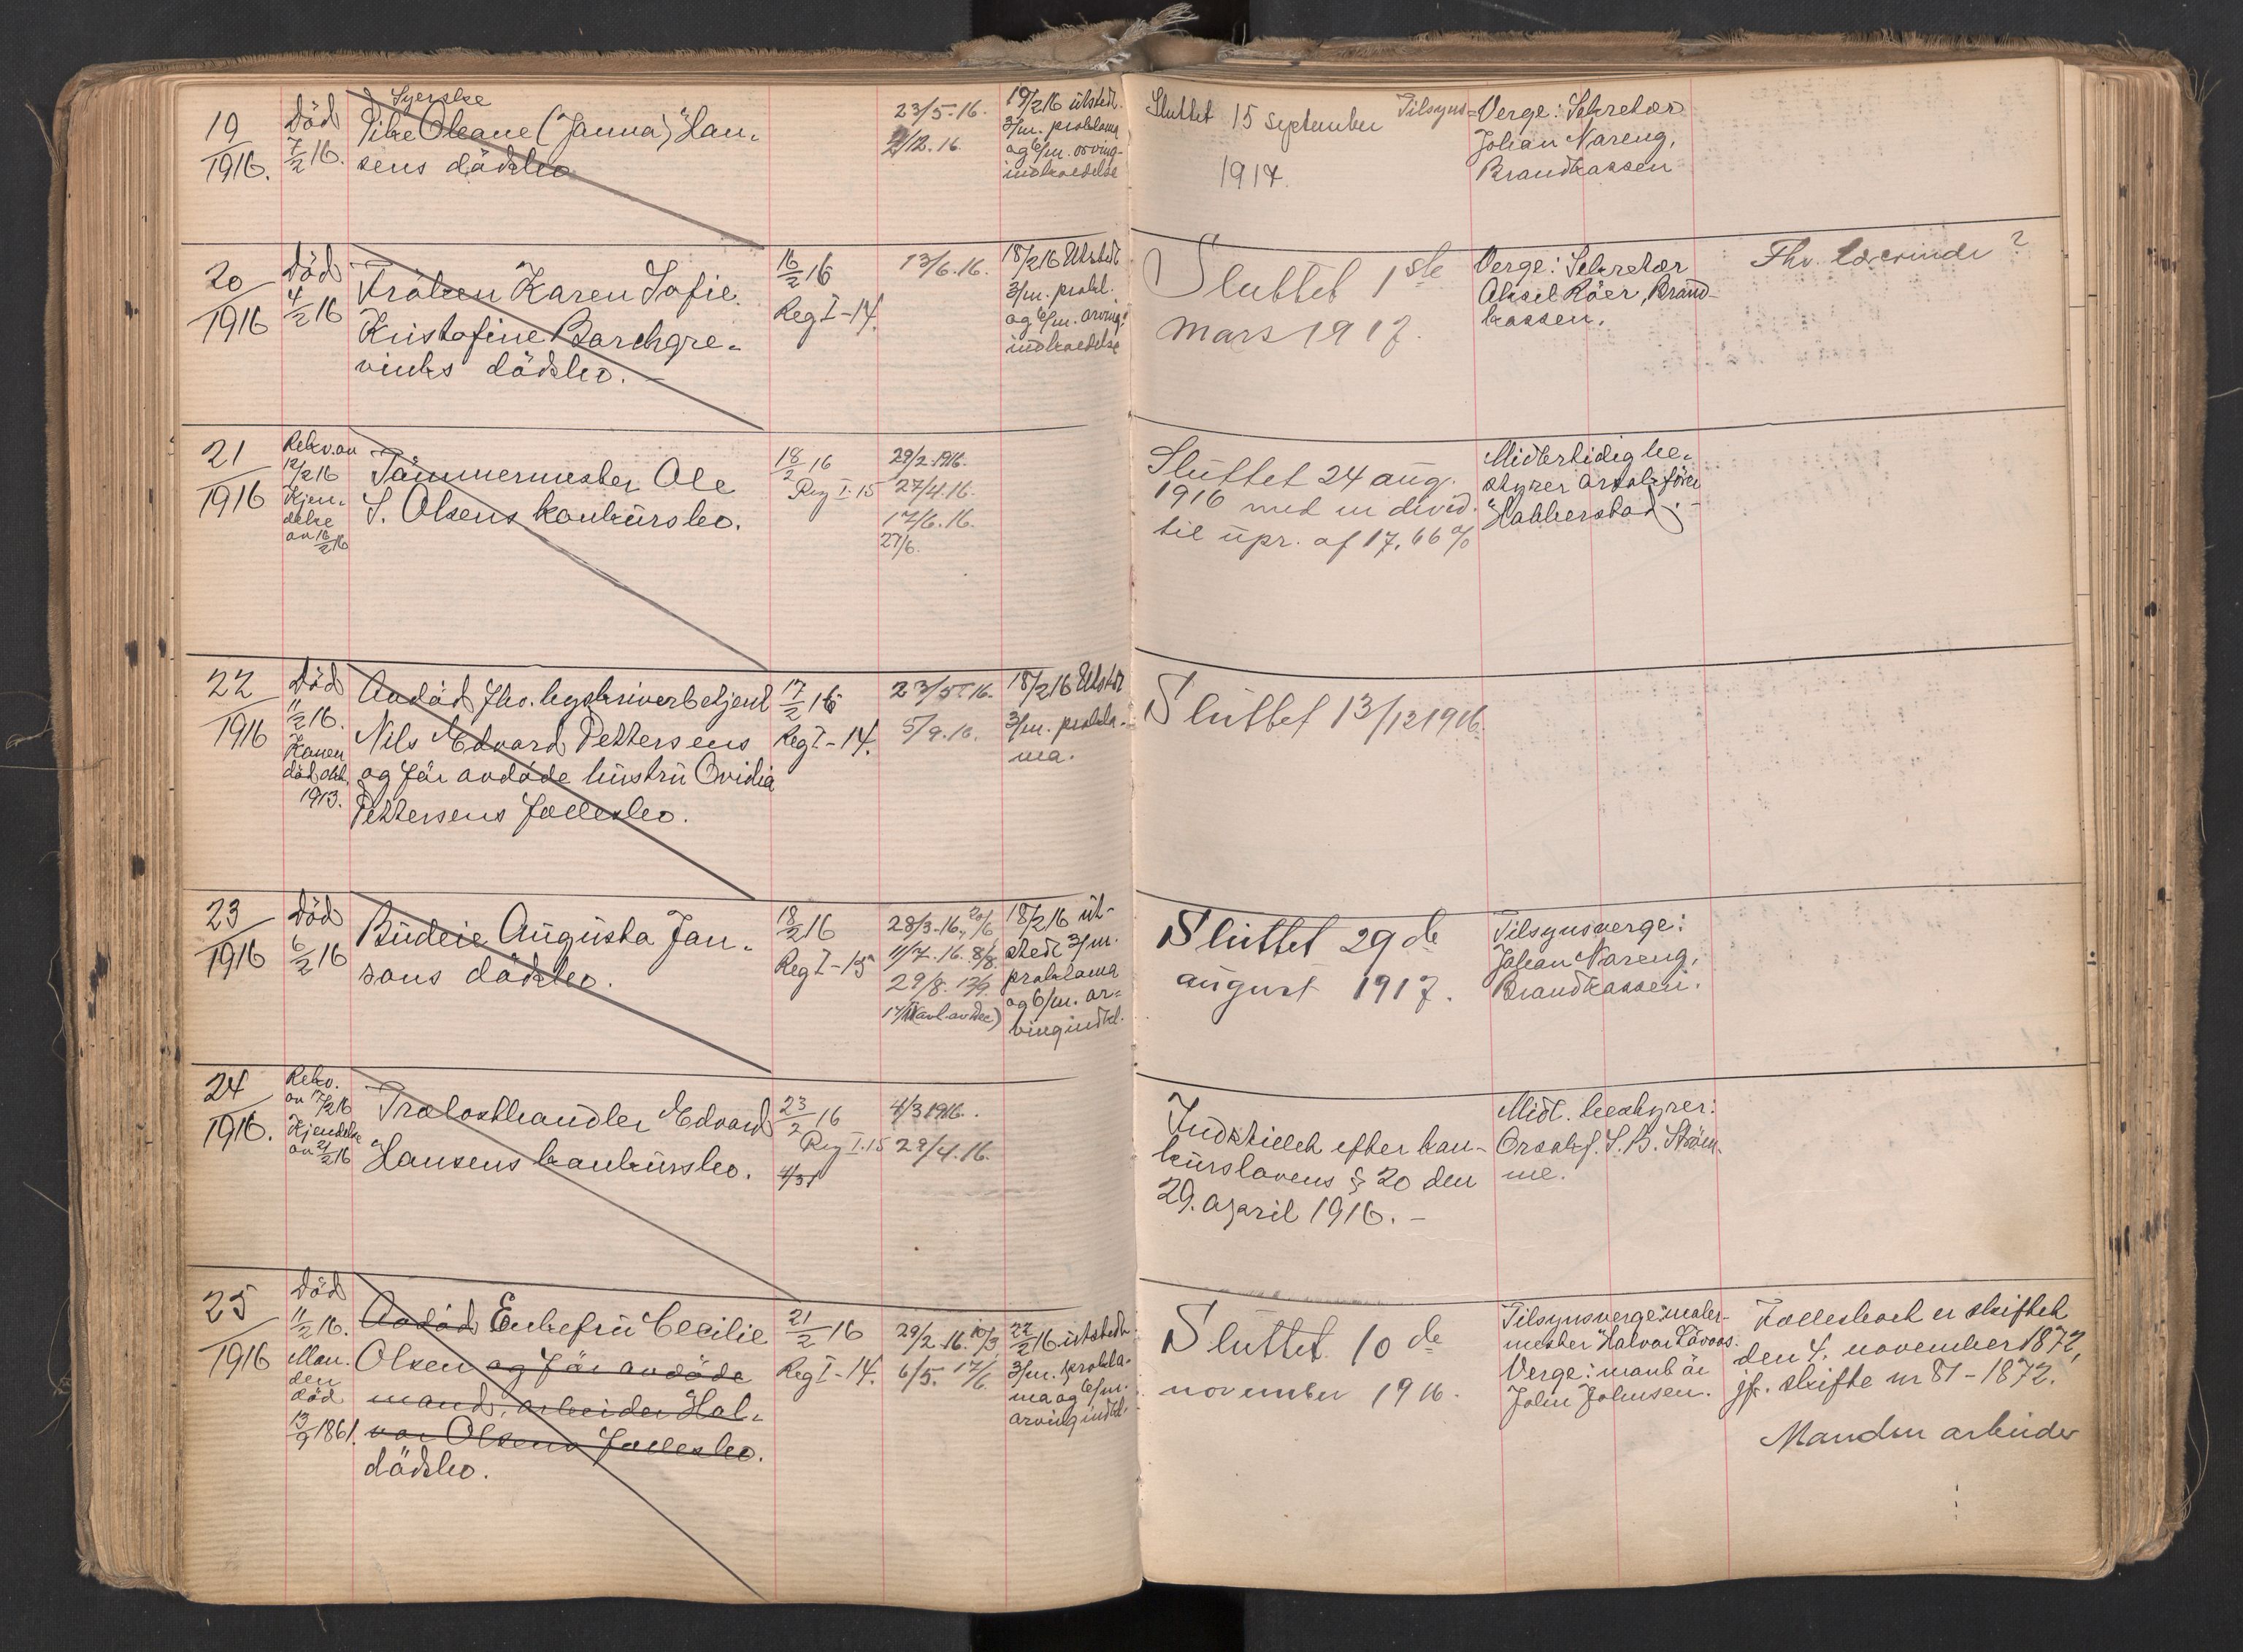 19
1916.
Död
7/2 16.
Syerske
Pike Oleane (Janna) Han-
sens dödsbo
23/5-16.
2/12.16
19/2 16 utstedt
3/m. proklama
og 6/m. arving-
indkaldelse
Sluttet 15 september
1917.
Tilsyns= Verge: Sekretær
Johan Nareng,
Brandkassen
20
1916
Död
4/2 16
Fröken Karen Sofie
Kristofine Borchgre-
vinks dödsbo. -
16/2 16
Reg I-14.
13/6.16.
18/2 16 Utstedt
3/m. prokl.
og 6/m. arving-
indkaldelse
Sluttet 1ste
mars 1917.
Verge: Sekretær
Aksel Röer, Brand-
kassen.
Fhv. lærerinde ?
21
1916
Rekv. av
12/2 16
Kjen-
delse
av 16/2 16
Tömmermester Ole
S. Olsens konkursbo.
18/2 16
Reg I.15
29/2.1916.
27/4.16.
17/6.16.
27/6.
Sluttet 24 aug.
1916 med en divid.
til upr. af 17,66 %
Midlertidig be-
styrer o.r.sakförer
Hakkerstad. -
22
1916
Död
11/2 16.
Konen
död okt.
1913.
Avdöd fhv. byskriverbetjent
Nils Edvard Pettersens
og för avdöde hustru Ovidia
Pettersens fællesbo.
17/2 16
Reg I-14.
23/5 16.
5/9.16.
18/2 16 Utstedt
3/m. prokla-
ma.
Sluttet 13/12 1916.
23
1916
Död
6/2 16
Budeie Augusta Jan-
sons dödsbo.
18/2 16
Reg I-15
28/3.16., 20/6
11/7.16. 8/8.
29/8.
18/2 16 ut-
stedt 3/m.
proklama
og 6/m. ar-
vingindkl.
Sluttet 29de
august 1917.
Tilsynsverge:
Johan Nareng,
Brandkassen.
24
1916.
Rekv.
av 17/2 16
Kjendelse
av 21/2 16
Trælasthandler Edvard
Hansens konkursbo.
23/2 16
Reg I.15
4/3
4/3 1916.
29/4.16.
Indstillet efter kon-
kurslovens § 20 den
29. april 1916. -
Midt. bestyrer:
Orsakf. S. B. Ström-
me.
25
1916
Död
11/2 16.
Man-
den
död
13/9 1861.
Avdöd Enkefru Cecilie
Olsen og för avdöde
mand, arbeider Hal-
vor Olsens fællesbo.
dödsbo.
21/2 16
Reg I-14.
29/2.16. 10/3
6/5. 17/6
22/2 16 utstedt
3/m. prokla-
ma og 6/m.
arvingindkl.
Sluttet 10de
november 1916.
Tilsynsverge: maler-
mester Halvor Lövaas.
Verge: mursör
John Johnsen.
Fællesboet er skiftet
den 4. november 1872,
jfr. skifte nr 81-1872.
Manden arbeider